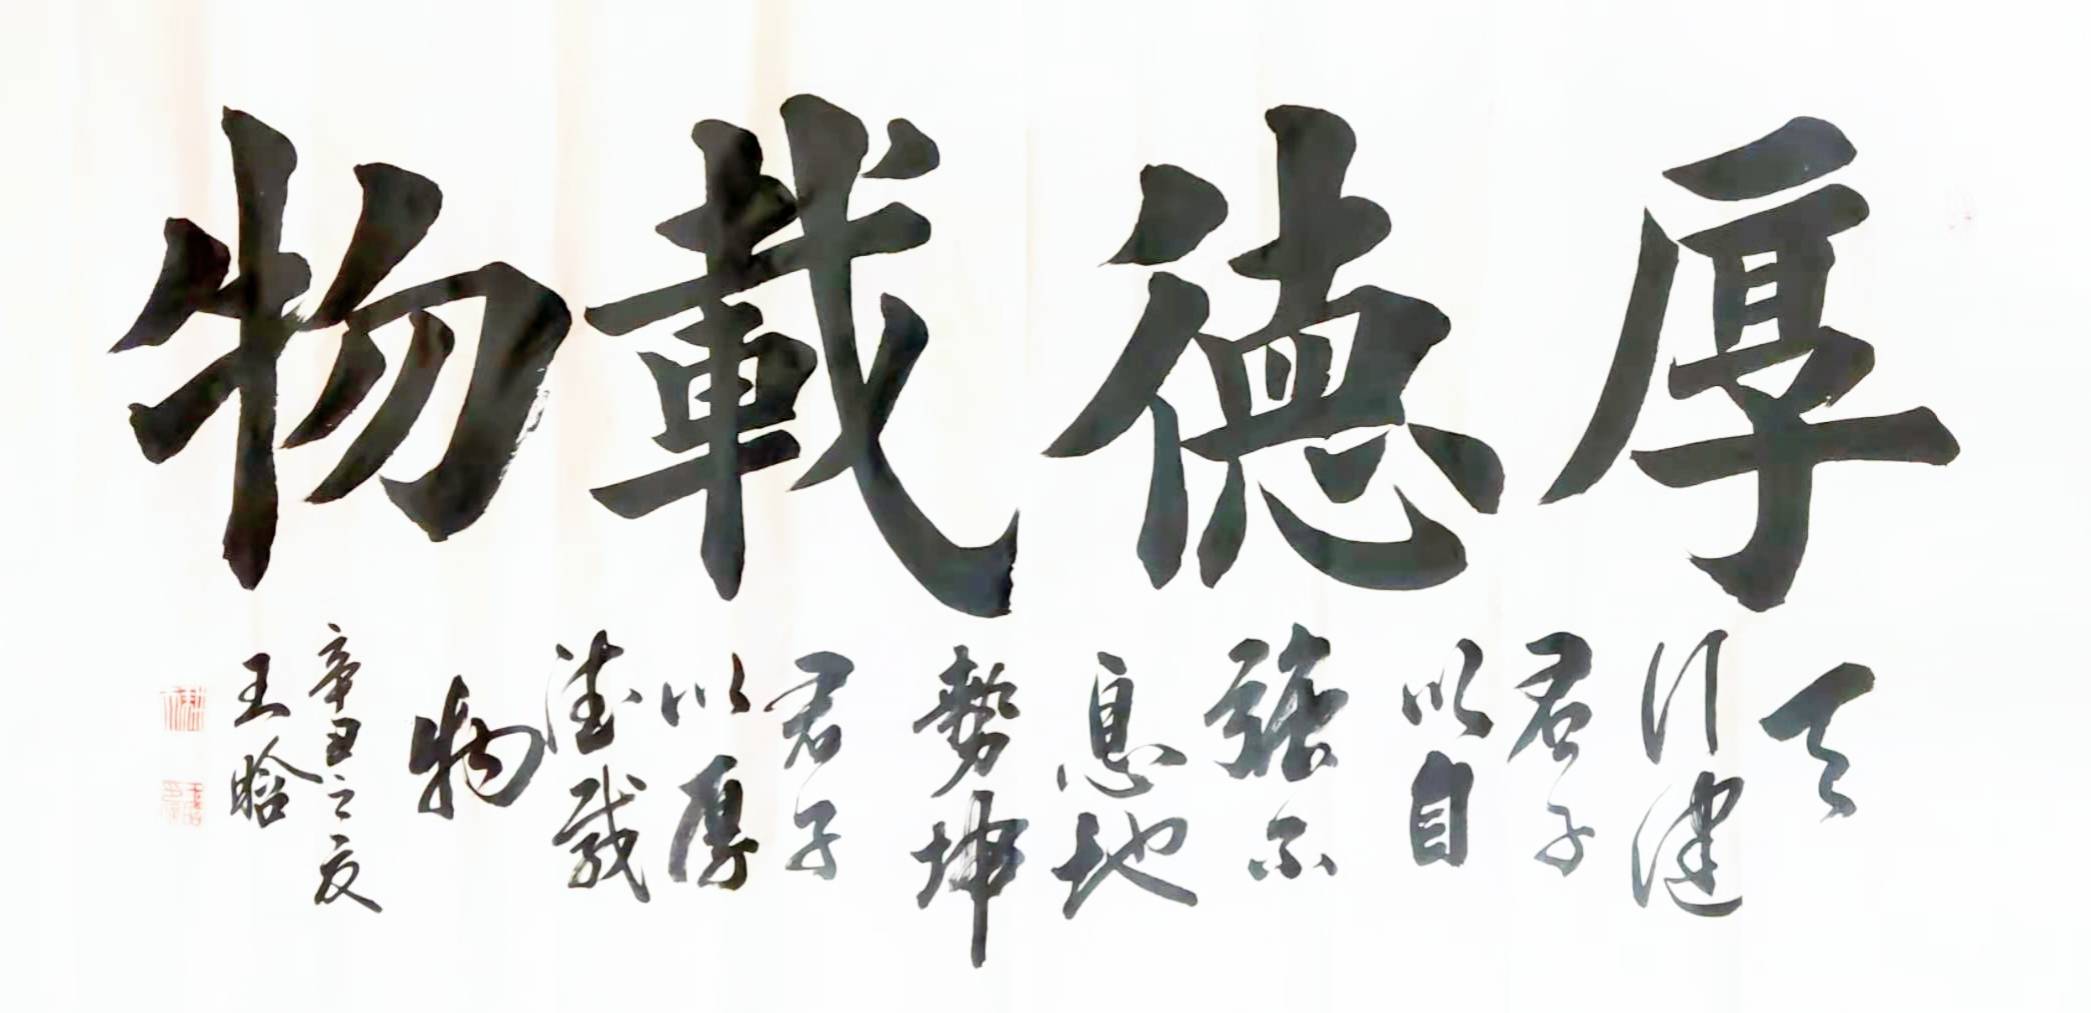 厚德載物
天
行健
君子
以自
強不
息地
勢坤
君子
以厚
德載
物
辛丑之夏
王晗